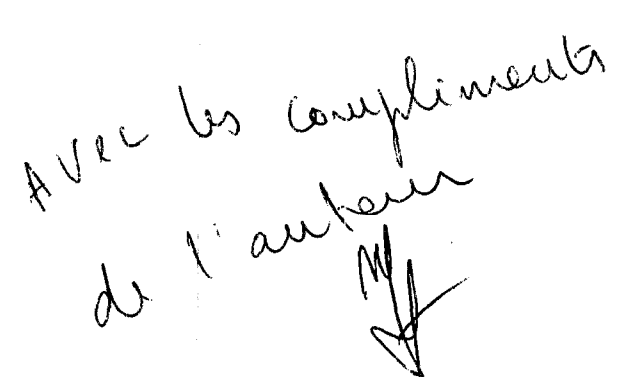 Avec les compliments
de l'auteur